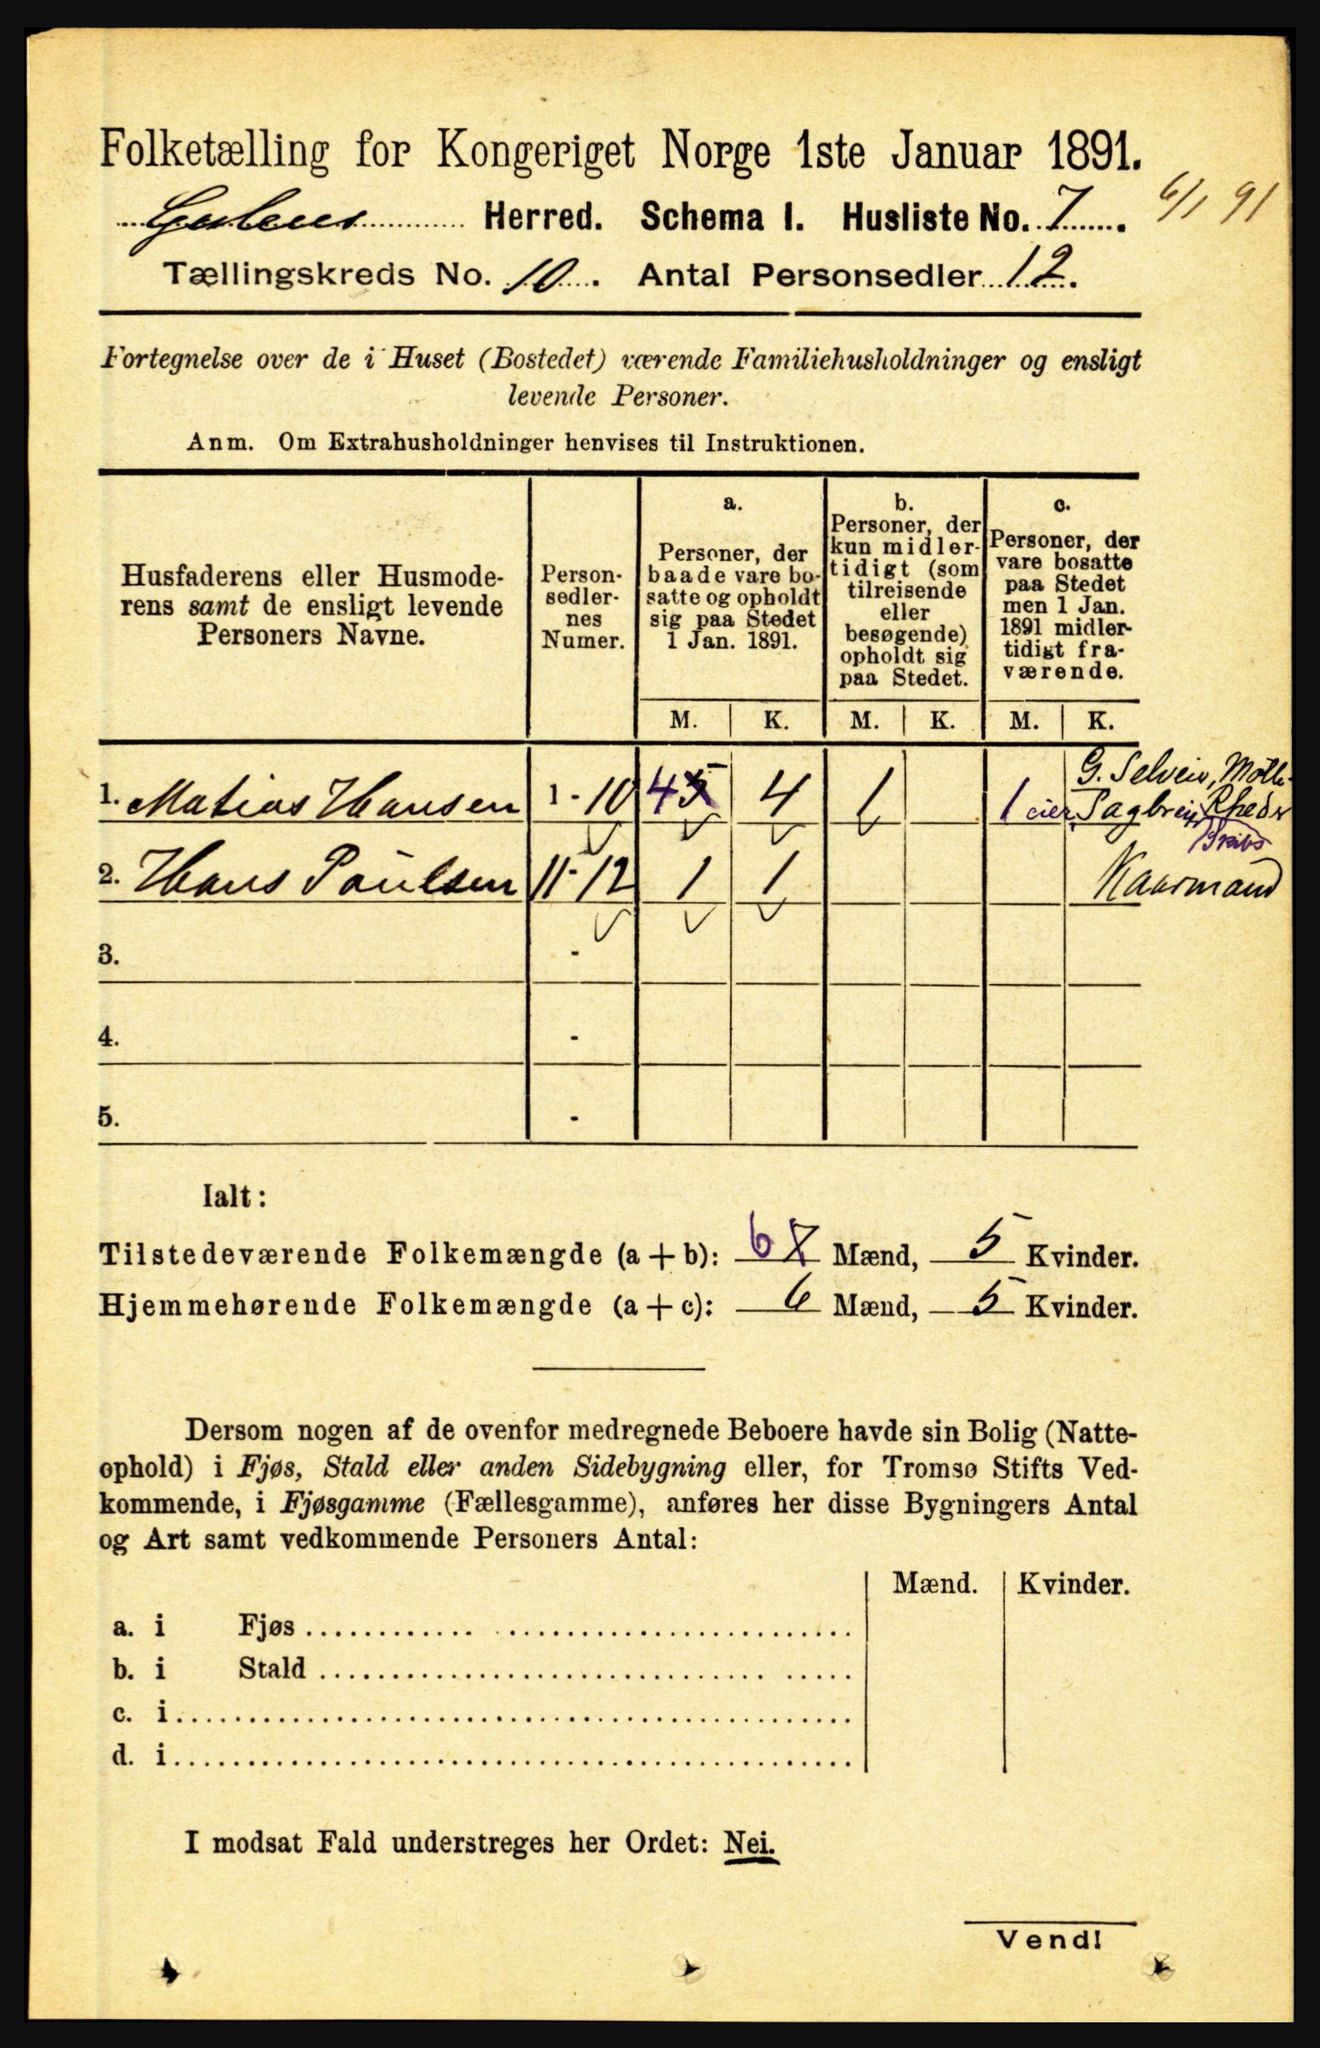 Folketælling for Kongeriget Norge 1ste Januar 1891.
6/1 91
Herred. Schema 1. Husliste No. 7.
Tællingskreds No. 10. Antal Personsedler 12.
Fortegnelse over de i Huset (Bostedet) værende Familiehusholdninger og ensligt
levende Personer.
Anm. Om Extrahusholdninger henvises til Instruktionen.
Husfaderens eller Husmode-
rens samt de ensligt levende
Personers Navne.
Person-
sedler-
nes
Numer.
a.
Personer, der
baade vare bo-
satte og opholdt
sig paa Stedet
1 Jan. 1891.
b.
Personer, der
kun midler-
tidigt (som
tilreisende
eller
besøgende)
opholdt sig
paa Stedet.
c.
Personer, der
vare bosatte
paa Stedet
men 1 Jan.
1891 midler-
tidigt fra-
værende.
M. K. M. K. M. K.
G. Selveier, Mølle-
1. Matias Hansen 1 - 10 4 5 4 1 1 eier, Sagbrug, Rheder
2. Hans Paulsen 11 - 12 1 1 Kaarmand
3. -
4. -
5. -
Ialt:
Tilstedeværende Folkemængde (a + b): 6 7 Mænd, 5 Kvinder.
Hjemmehørende Folkemængde (a + c): 6 Mænd, 5 Kvinder.
Dersom nogen af de ovenfor medregnede Beboere havde sin Bolig (Natte-
ophold) i Fjøs, Stald eller anden Sidebygning eller, for Tromsø Stifts Ved-
kommende, i Fjøsgamme (Fællesgamme), anføres her disse Bygningers Antal
og Art samt vedkommende Personers Antal:
Mænd. Kvinder.
a. i Fjøs
b. i Stald
c. i
d. i
I modsat Fald understreges her Ordet: Nei.
Vend!